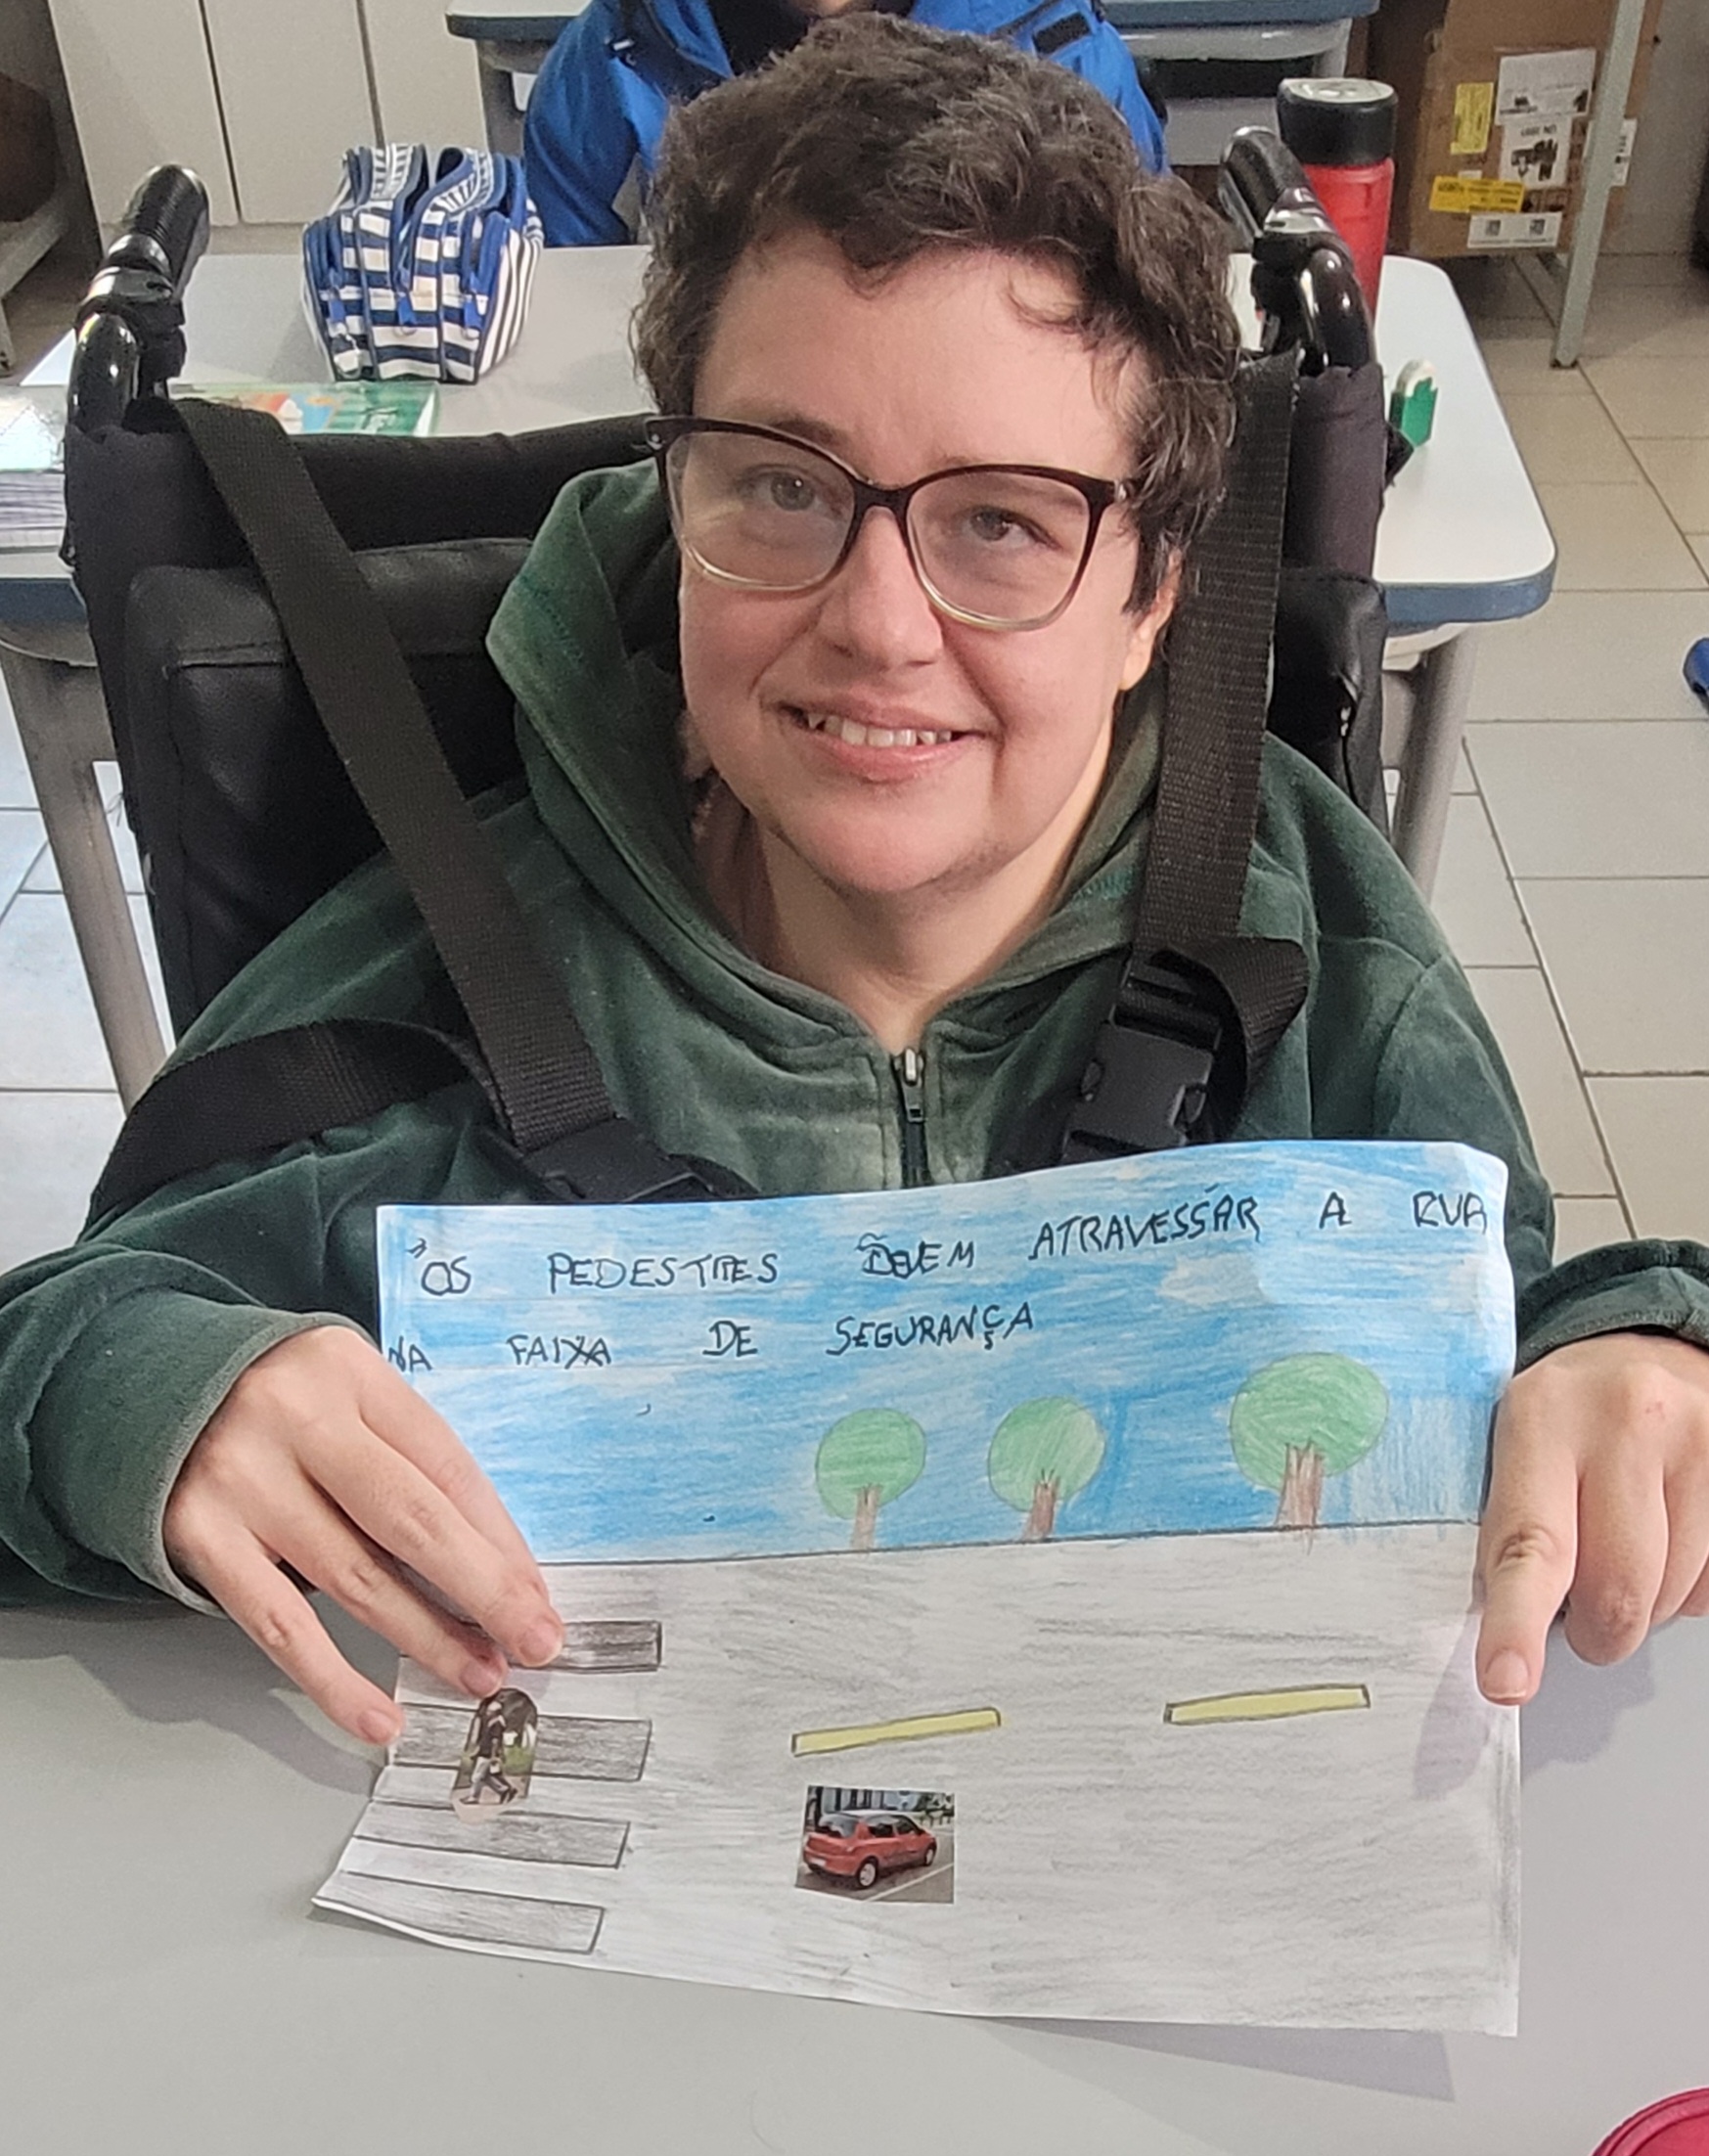 "OS PEDESTRES DEVEM ATRAVESSAR A RUA
NA FAIXA DE SEGURANÇA